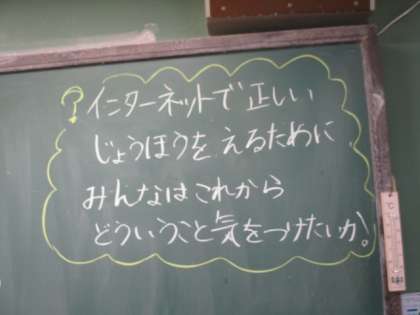 ? インターネットで正しい
じょうほうを えるために
みんなはこれから
どういうこと気をつけたいか!